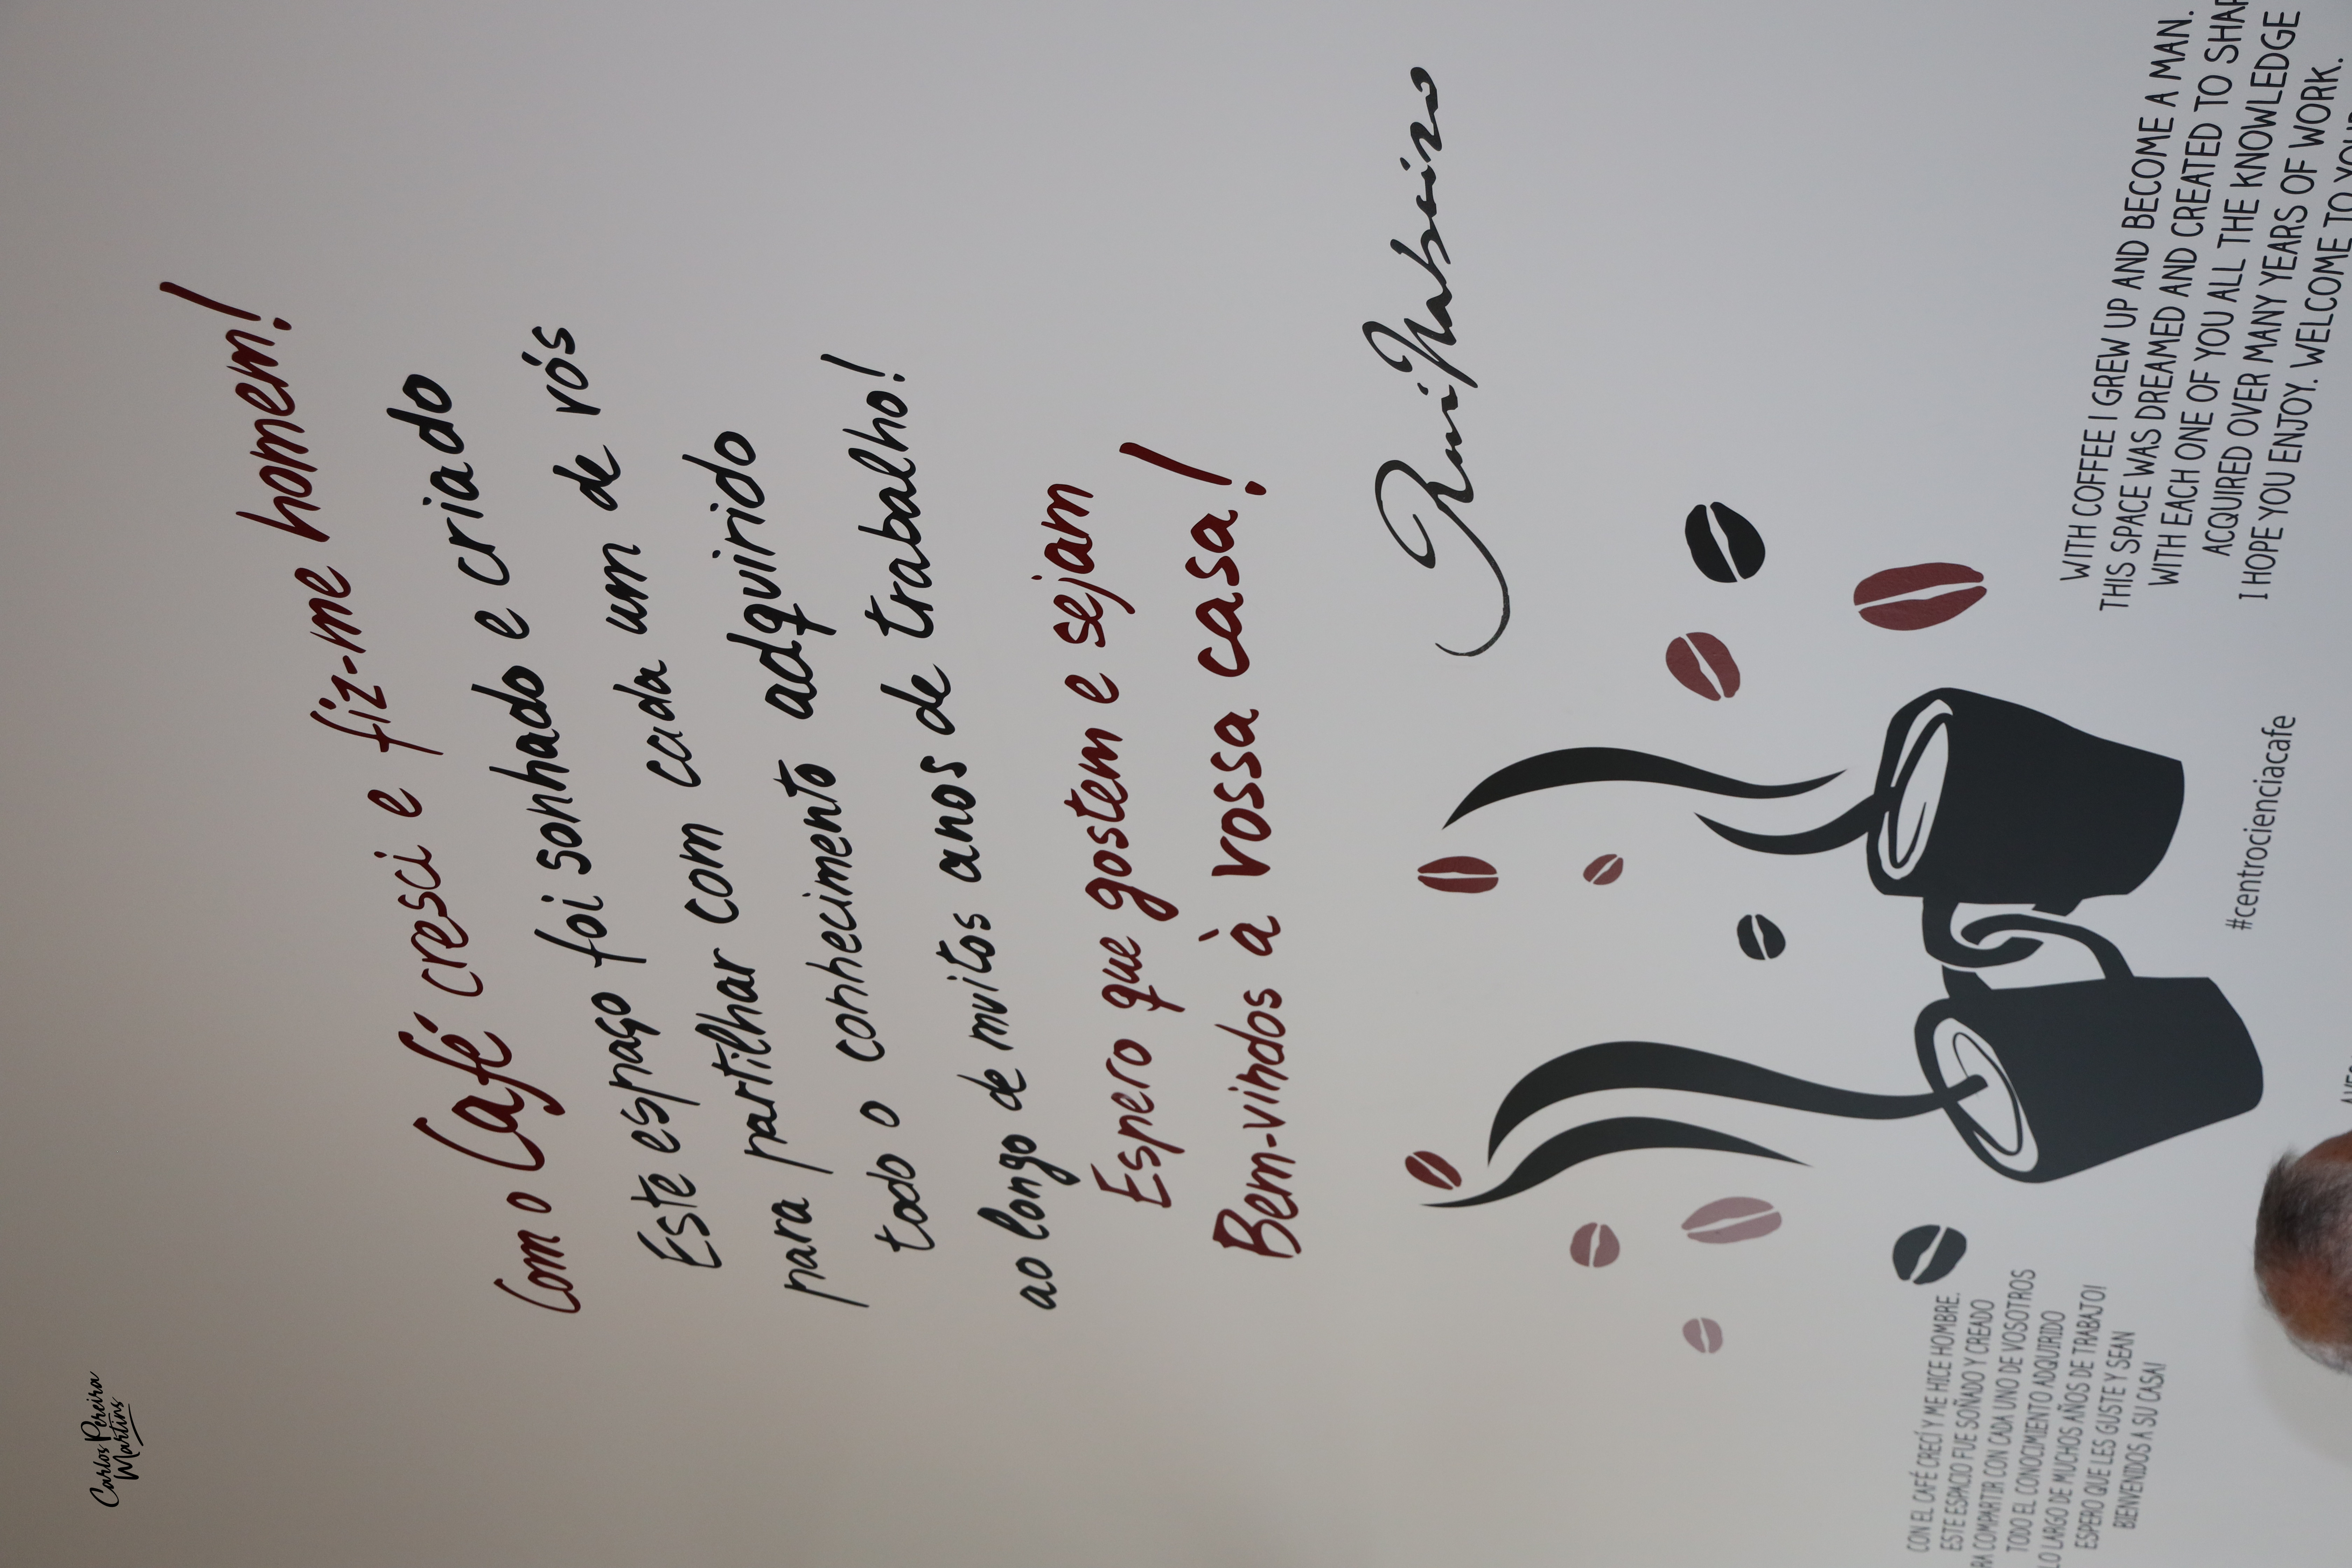 Carlos Pereira
Martins
Com o Café cresci e fiz-me homem!
Este espaço foi sonhado e criado
para partilhar com cada um de vós
todo o conhecimento adquirido
ao longo de muitos anos de trabalho!
Espero que gostem e sejam
Bem-vindos à vossa casa!
Rui Nabeiro
CON EL CAFÉ CRECÍ Y ME HICE HOMBRE.
ESTE ESPACIO FUE SOÑADO Y CREADO
COMPARTIR CON CADA UNO DE VOSOTROS
TODO EL CONOCIMIENTO ADQUIRIDO
LARGO DE MUCHOS AÑOS DE TRABAJO!
ESPERO QUE LES GUSTE Y SEAN
BIENVENIDOS A SU CASA!
#centrocienciacafe
WITH COFFEE I GREW UP AND BECOME A MAN.
THIS SPACE WAS DREAMED AND CREATED TO
WITH EACH ONE OF YOU ALL THE KNOWLEDGE
ACQUIRED OVER MANY YEARS OF WORK.
I HOPE YOU ENJOY. WELCOME TO